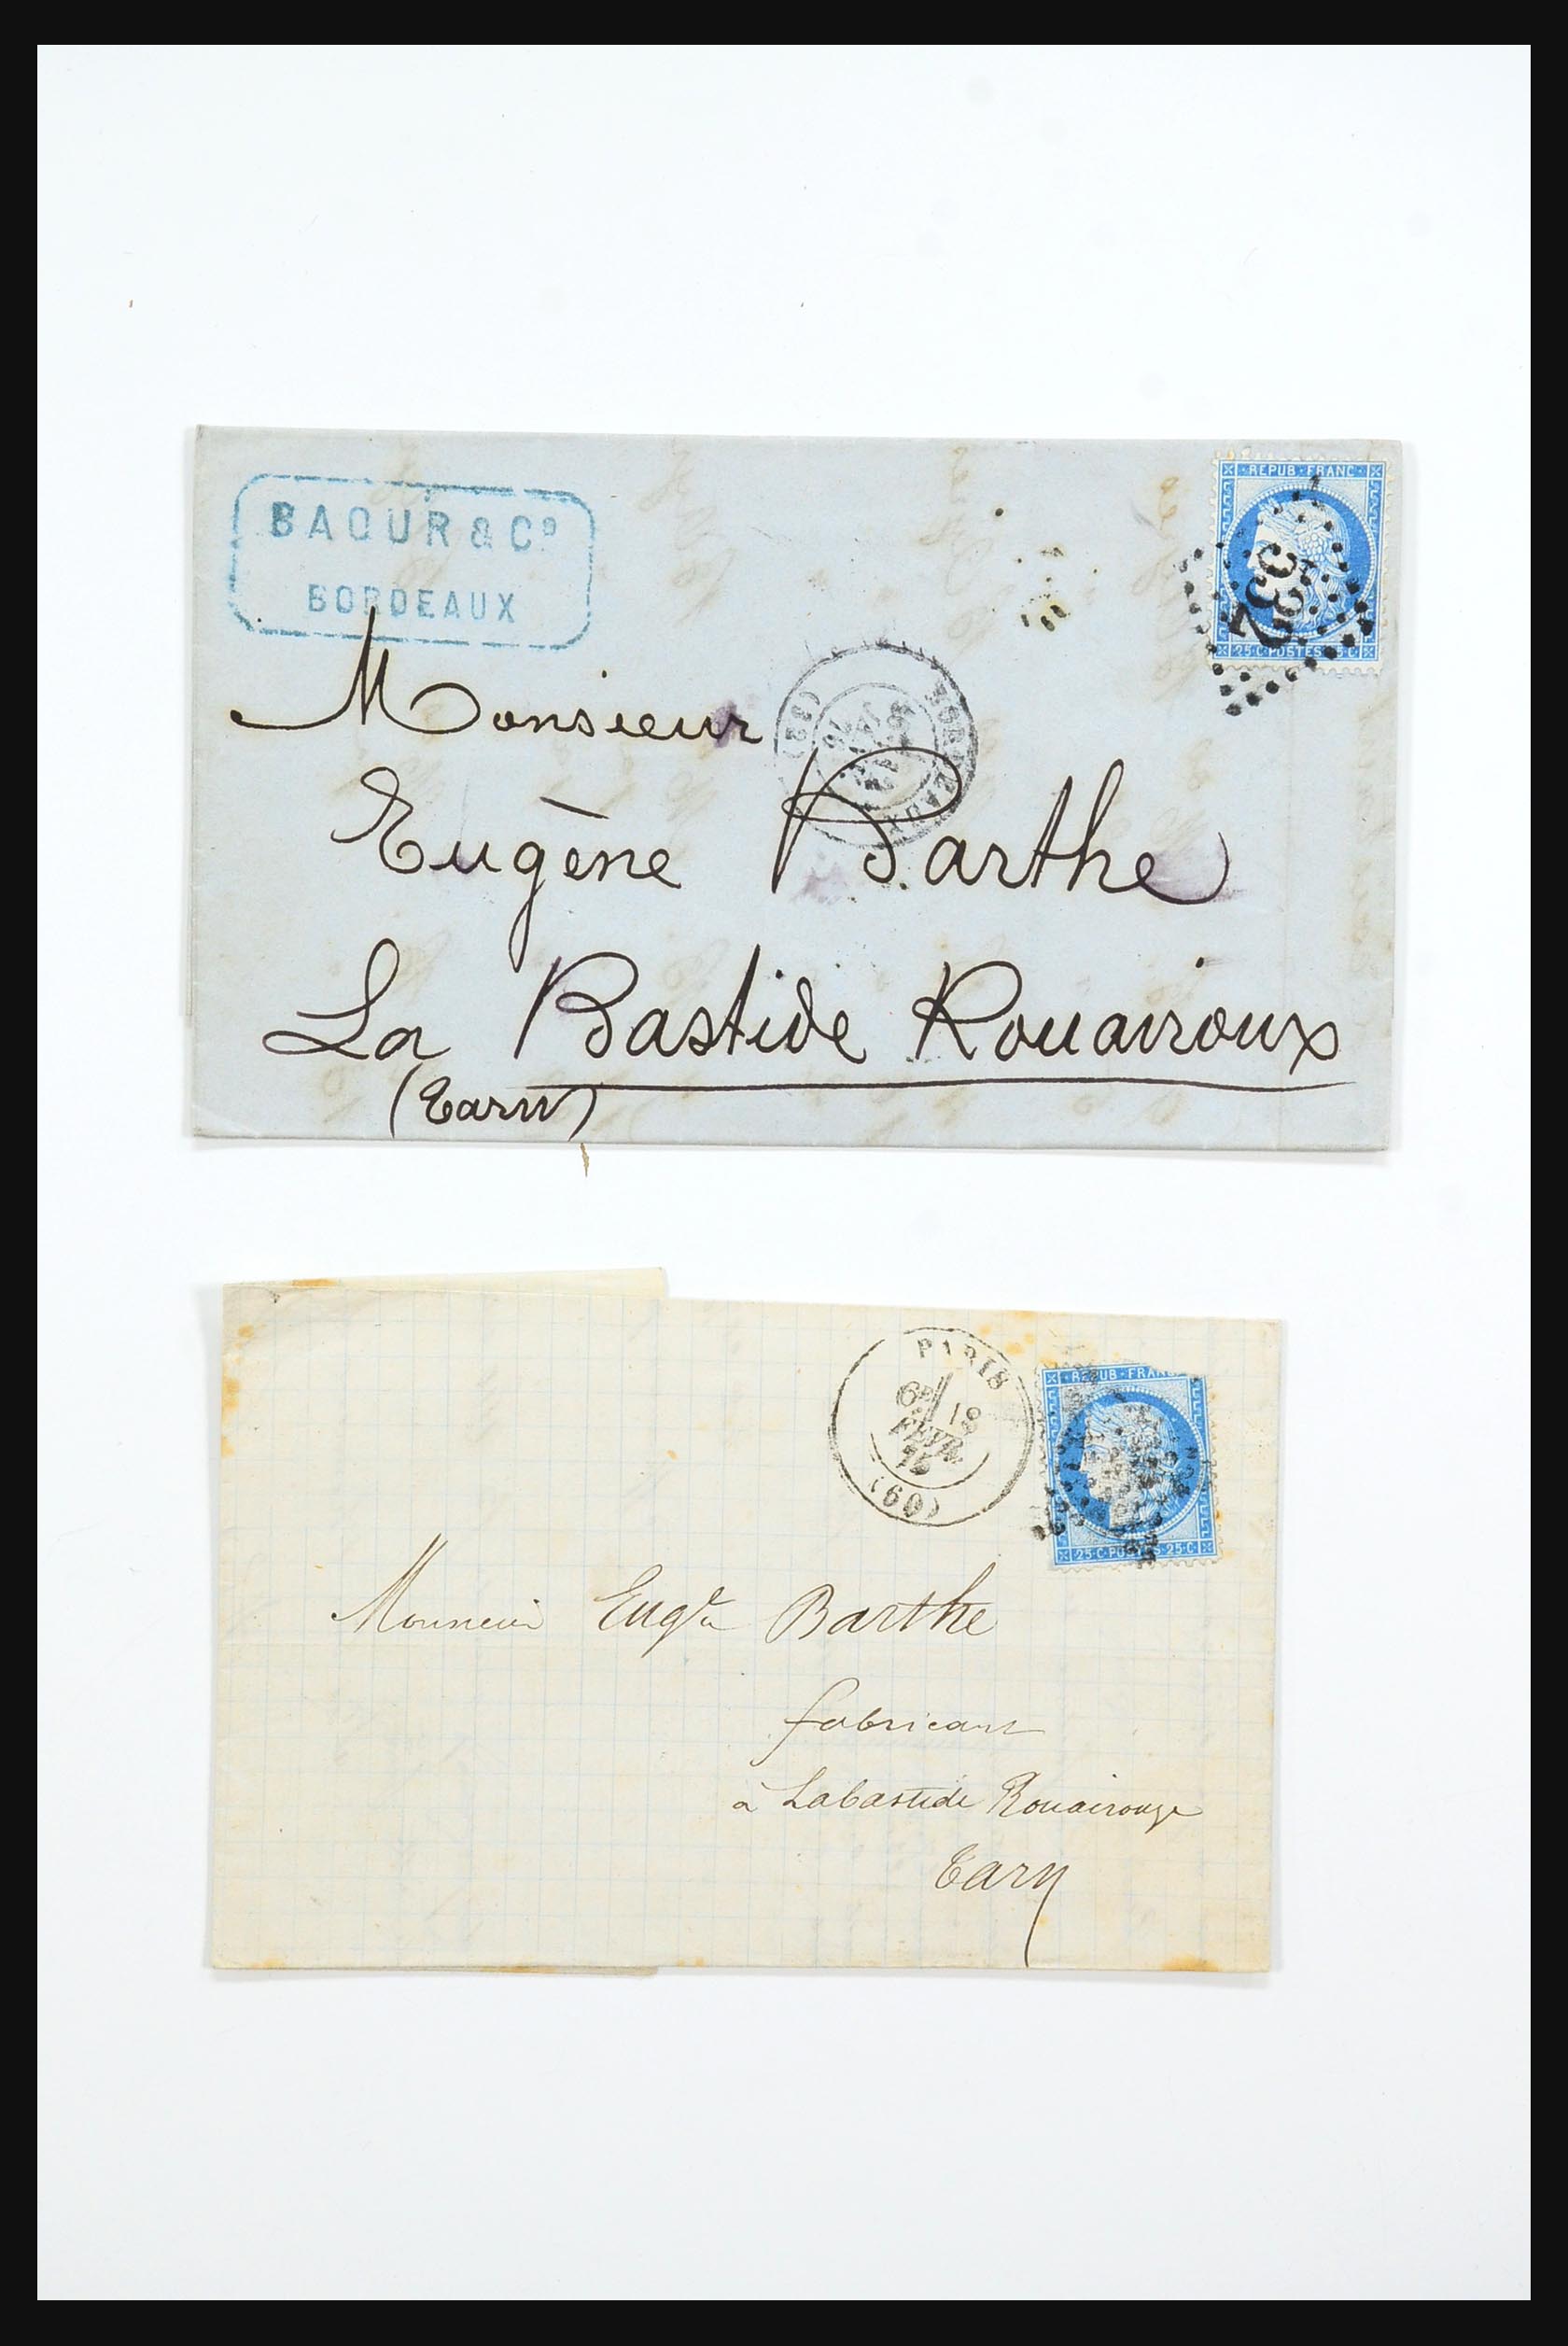 BAOUR & Cº
BORDEAUX
REPUB·FRANC
532
25·C·POSTES
BORDEAUX
(32)
Monsieur
Eugène Barthe
La Bastide Rouairoux
(Tarn)
PARIS
6E/ 18
FEVR.
75
(60)
REPUB·FRANC
25·C·POSTES·25·C
Monsieur Eugne Barthe
fabricant
à Labastide Rouairouze
Tarn